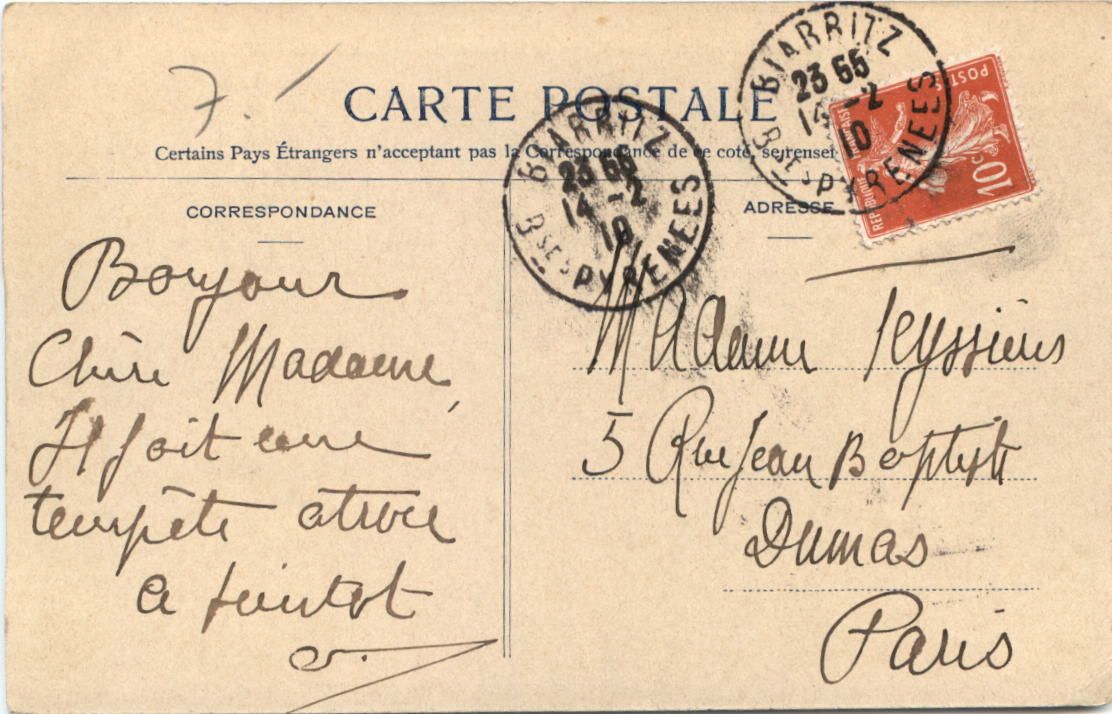 7.
CARTE POSTALE
Certains Pays Étrangers n'acceptant pas la Correspondance de ce coté, se rensei
CORRESPONDANCE
Bonjour
Chère Madame,
Il fait une
tempête atroce
a bientot
BIARRITZ
23 55
14 -2
10
Bses PYRENEES
BIARRITZ
23 55
14 -2
10
Bses PYRENEES
POSTES
REPUBLIQUE FRANCAISE
10c
ADRESSE
Madame Teyssière
5 Rue Jean Baptiste
Dumas
Paris